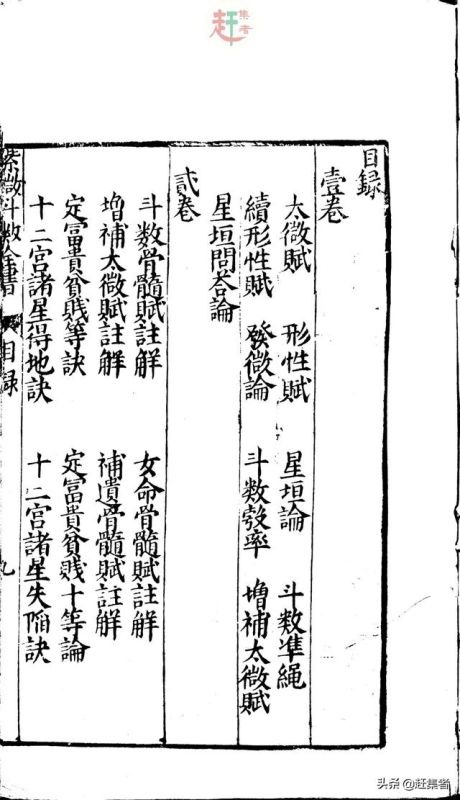 赶集者
目録
壹卷
太微賦 形性賦 星垣論 斗数準繩
續形性賦 發微論 斗数彀率 增補太微賦
星垣問答論
貳卷
斗数骨髓賦註解 女命骨髓賦註解
增補太微賦註解 補遺骨髓賦註解
定冨貴貧賤等訣 定冨貴貧賤十等論
十二宫諸星得地訣 十二宫諸星失陥訣
紫微斗数全書 目録 九
头条 @赶集者